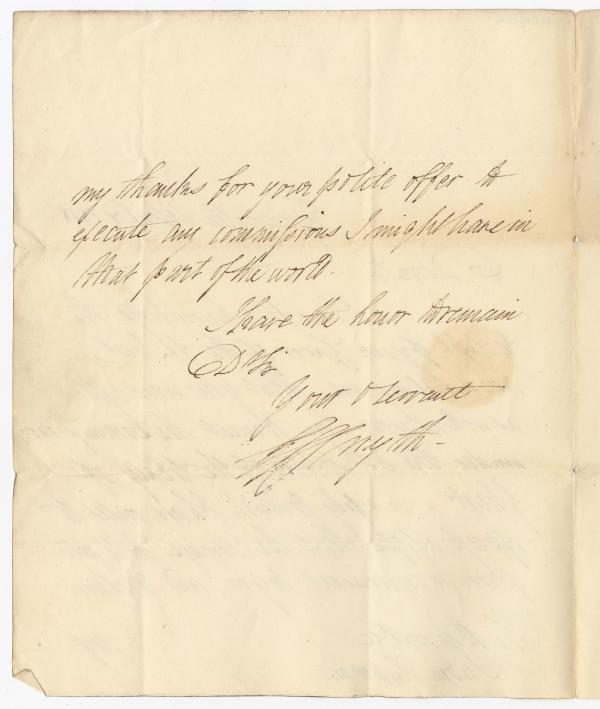 my thanks for your polite offer to
execute any commissions I might have in
that part of the world.
I have the honor to remain
Dr Sir
Your O Servant
Smyth